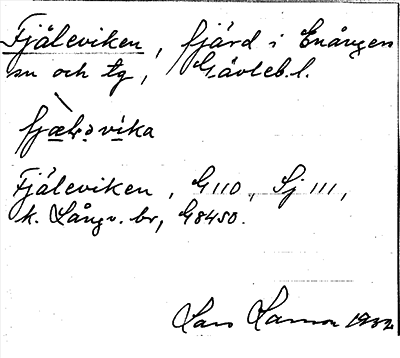 Fjäleviken, fjärd i Enånger
sn och tg, Gävleb. l.
fjæləvika
Fjäleviken, G110, Sj 111,
k. Långv. br, G8450.
Lars 1932